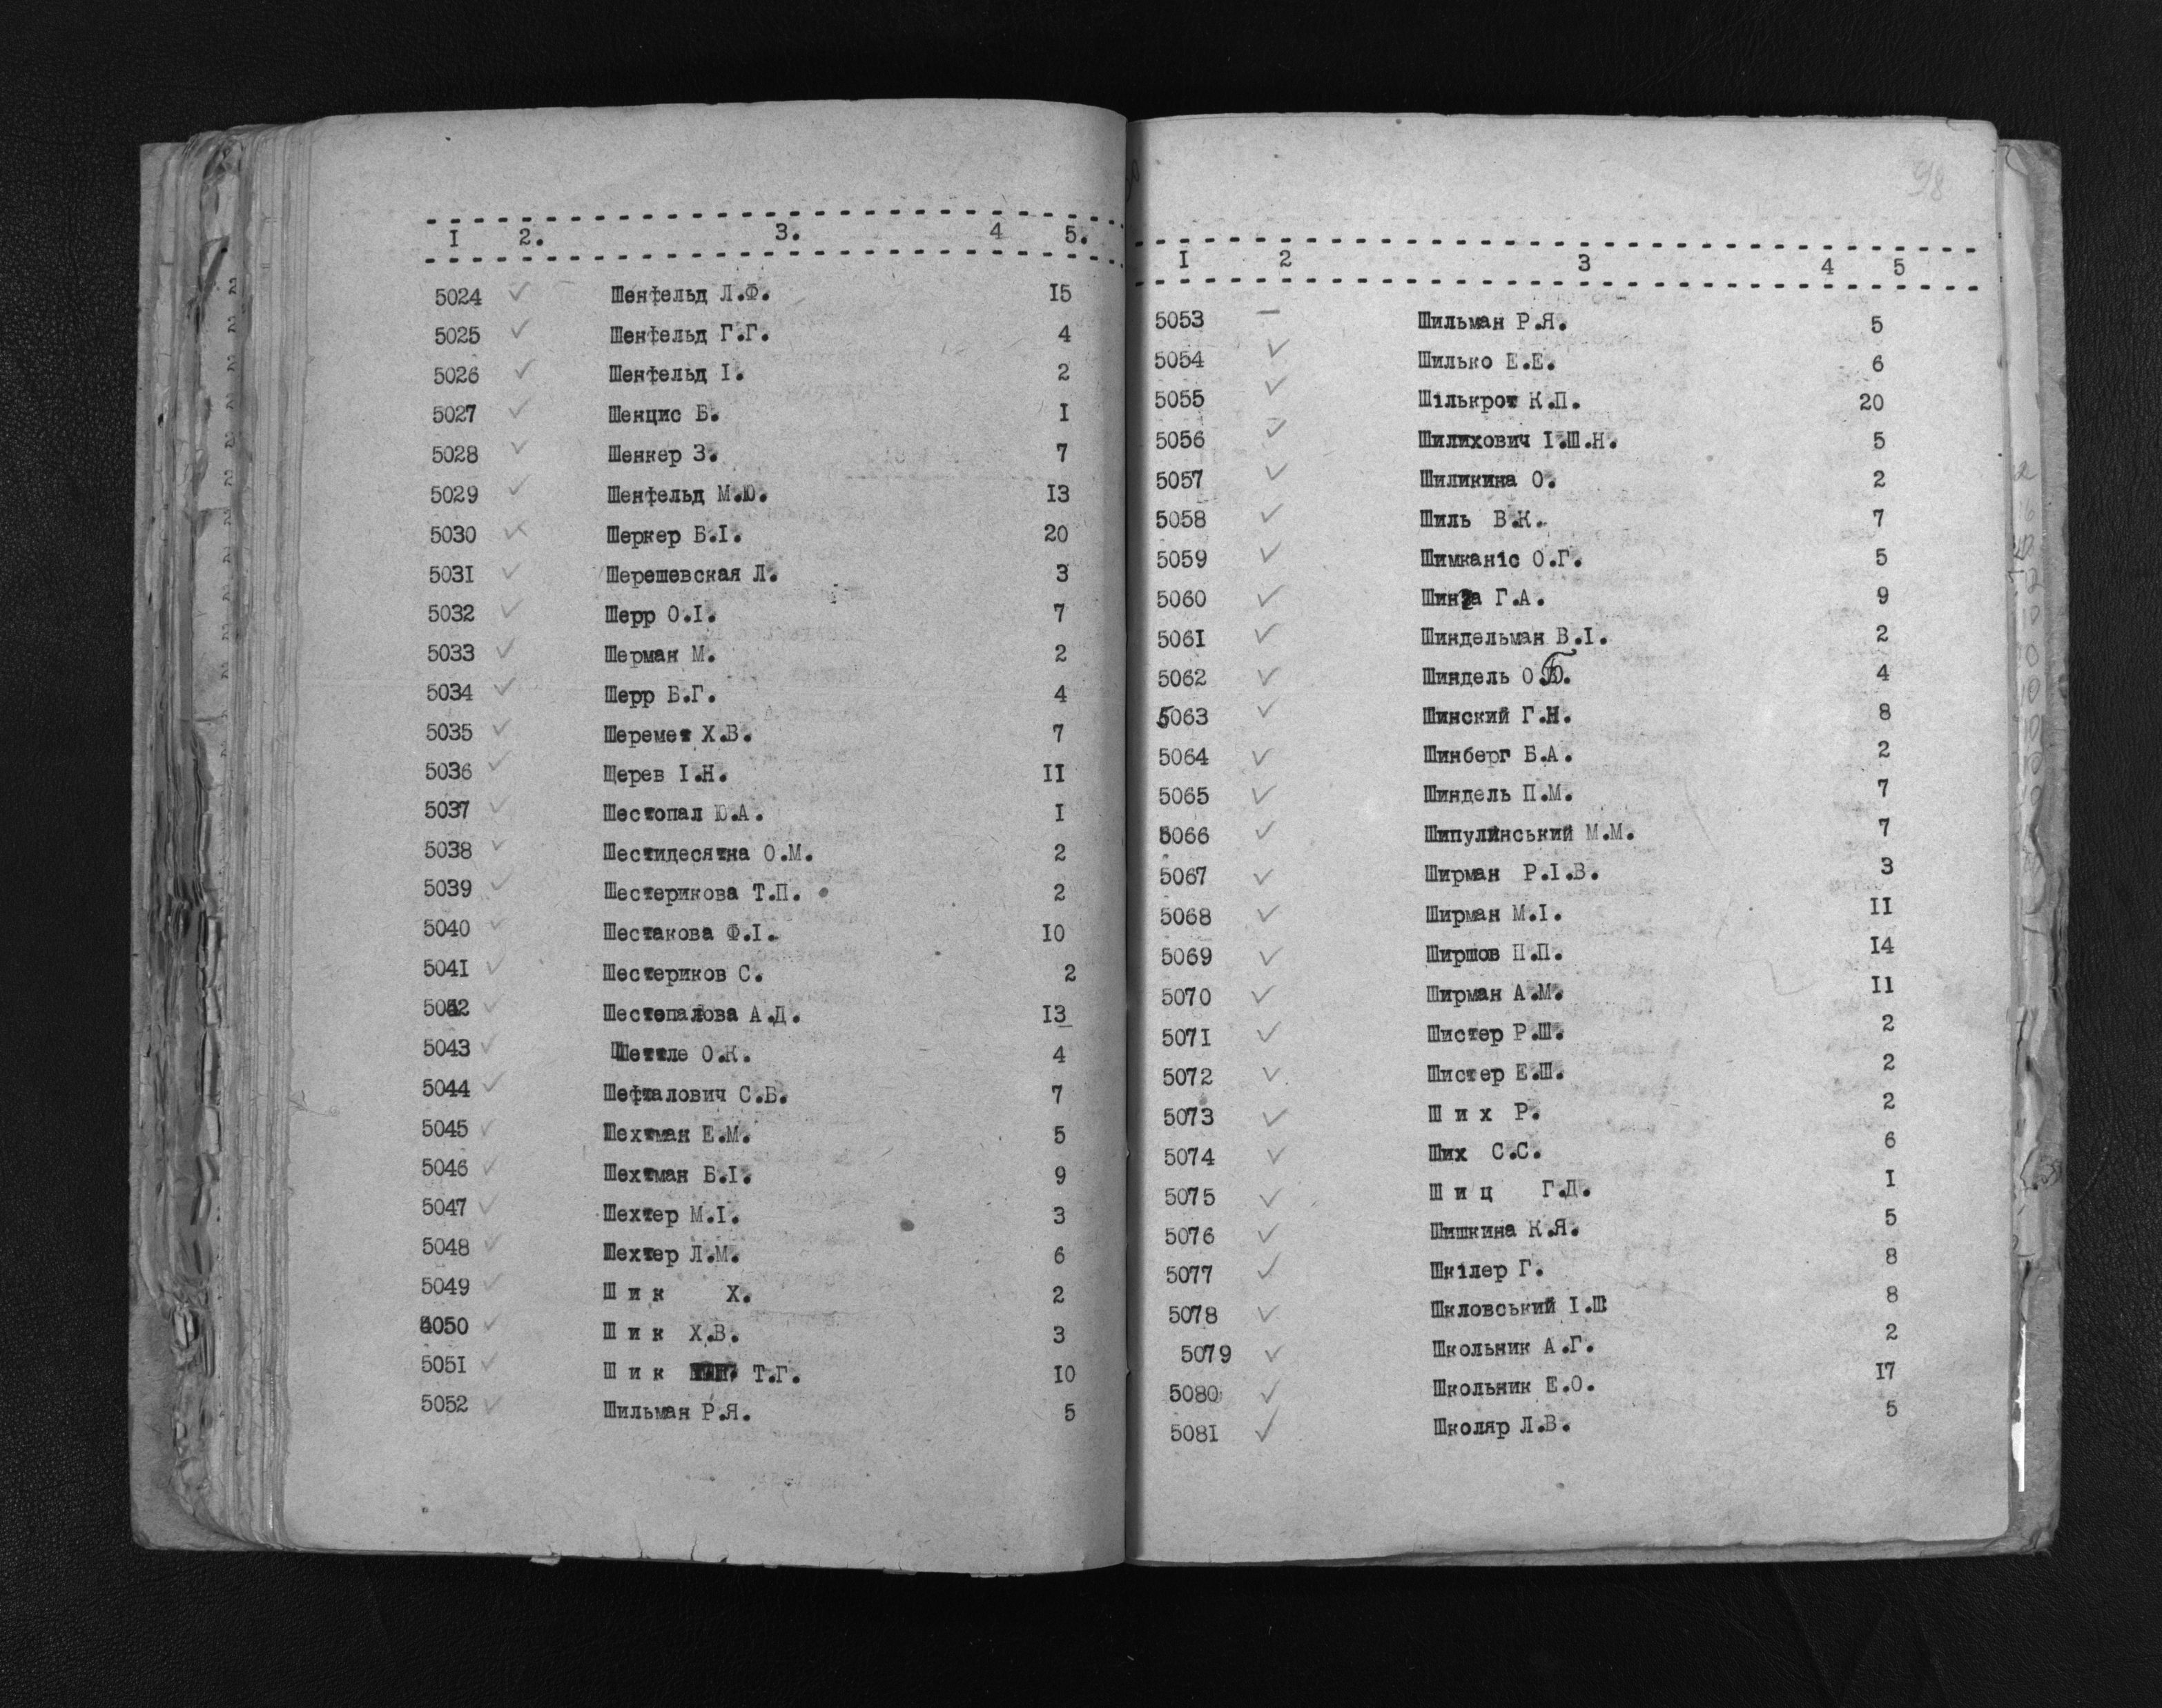 I 2. 3. 4 5.
5024 ✓ Шенфельд Л.Ф. I5
5025 ✓ Шенфельд Г.Г. 4
5026 ✓ Шенфельд І. 2
5027 ✓ Шенцис Б. I
5028 ✓ Шенкер З. 7
5029 ✓ Шенфельд М.Ю. I3
5030 ✓ Шеркер Б.І. 20
503I ✓ Шерешевская Л. 3
5032 ✓ Шерр О.І. 7
5033 ✓ Шерман М. 2
5034 ✓ Шерр Б.Г. 4
5035 ✓ Шеремет Х.В. 7
5036 ✓ Щерев І.Н. II
5037 ✓ Шестопал Ю.А. I
5038 ✓ Шестидесятна О.М. 2
5039 ✓ Шестерикова Т.П. 2
5040 ✓ Шестакова Ф.І. I0
504I ✓ Шестериков С. 2
5042 ✓ Шестопалова А.Д. I3
5043 ✓ Шеттле О.К. 4
5044 ✓ Шефталович С.Б. 7
5045 ✓ Шехтман Е.М. 5
5046 ✓ Шехтман Б.І. 9
5047 ✓ Шехтер М.І. 3
5048 ✓ Шехтер Л.М. 6
5049 ✓ Ш и к Х. 2
5050 ✓ Ш и к Х.В. 3
505I ✓ Ш и к Т.Г. I0
5052 ✓ Шильман Р.Я. 5
98
I 2 3 4 5
5053 — Шильман Р.Я. 5
5054 ✓ Шилько Е.Е. 6
5055 ✓ Шількрот К.П. 20
5056 ✓ Шилихович І.Ш.Н. 5
5057 ✓ Шиликина О. 2
5058 ✓ Шиль В.К. 7
5059 ✓ Шимканіс О.Г. 5
5060 ✓ Г.А. 9
506I ✓ Шиндельман В.І. 2
5062 ✓ Шиндель О.Б. 4
5063 ✓ Шинский Г.Н. 8
5064 ✓ Шинберг Б.А. 2
5065 ✓ Шиндель П.М. 7
5066 ✓ Шипулинський М.М. 7
5067 ✓ Ширман Р.І.В. 3
5068 ✓ Ширман М.І. II
5069 ✓ Ширшов П.П. I4
5070 ✓ Ширман А.М. II
507I ✓ Шистер Р.Ш. 2
5072 ✓ Шистер Е.Ш. 2
5073 ✓ Ш и х Р. 2
5074 ✓ Ших С.С. 6
5075 ✓ Ш и ц Г.Д. I
5076 ✓ Шишкина К.Я. 5
5077 ✓ Шкілер Г. 8
5078 ✓ Шкловський І.Ш 8
5079 ✓ Школьник А.Г. 2
5080 ✓ Школьник Е.О. I7
508I ✓ Школяр Л.В. 5